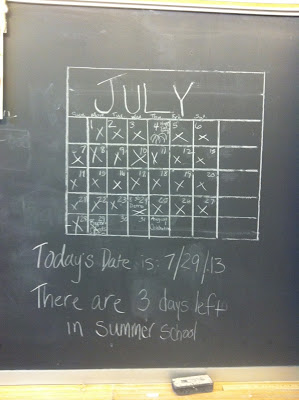 JULY
Sun Mon Tue Wed Thu Fri Sat
1 2 3 4 5 6
7 8 9 10 11 12 13
15 16 17 18 19 20
22 23 24 26 27
30 31
Today's Date is: 7/29/13
There are 3 days left
in summer school